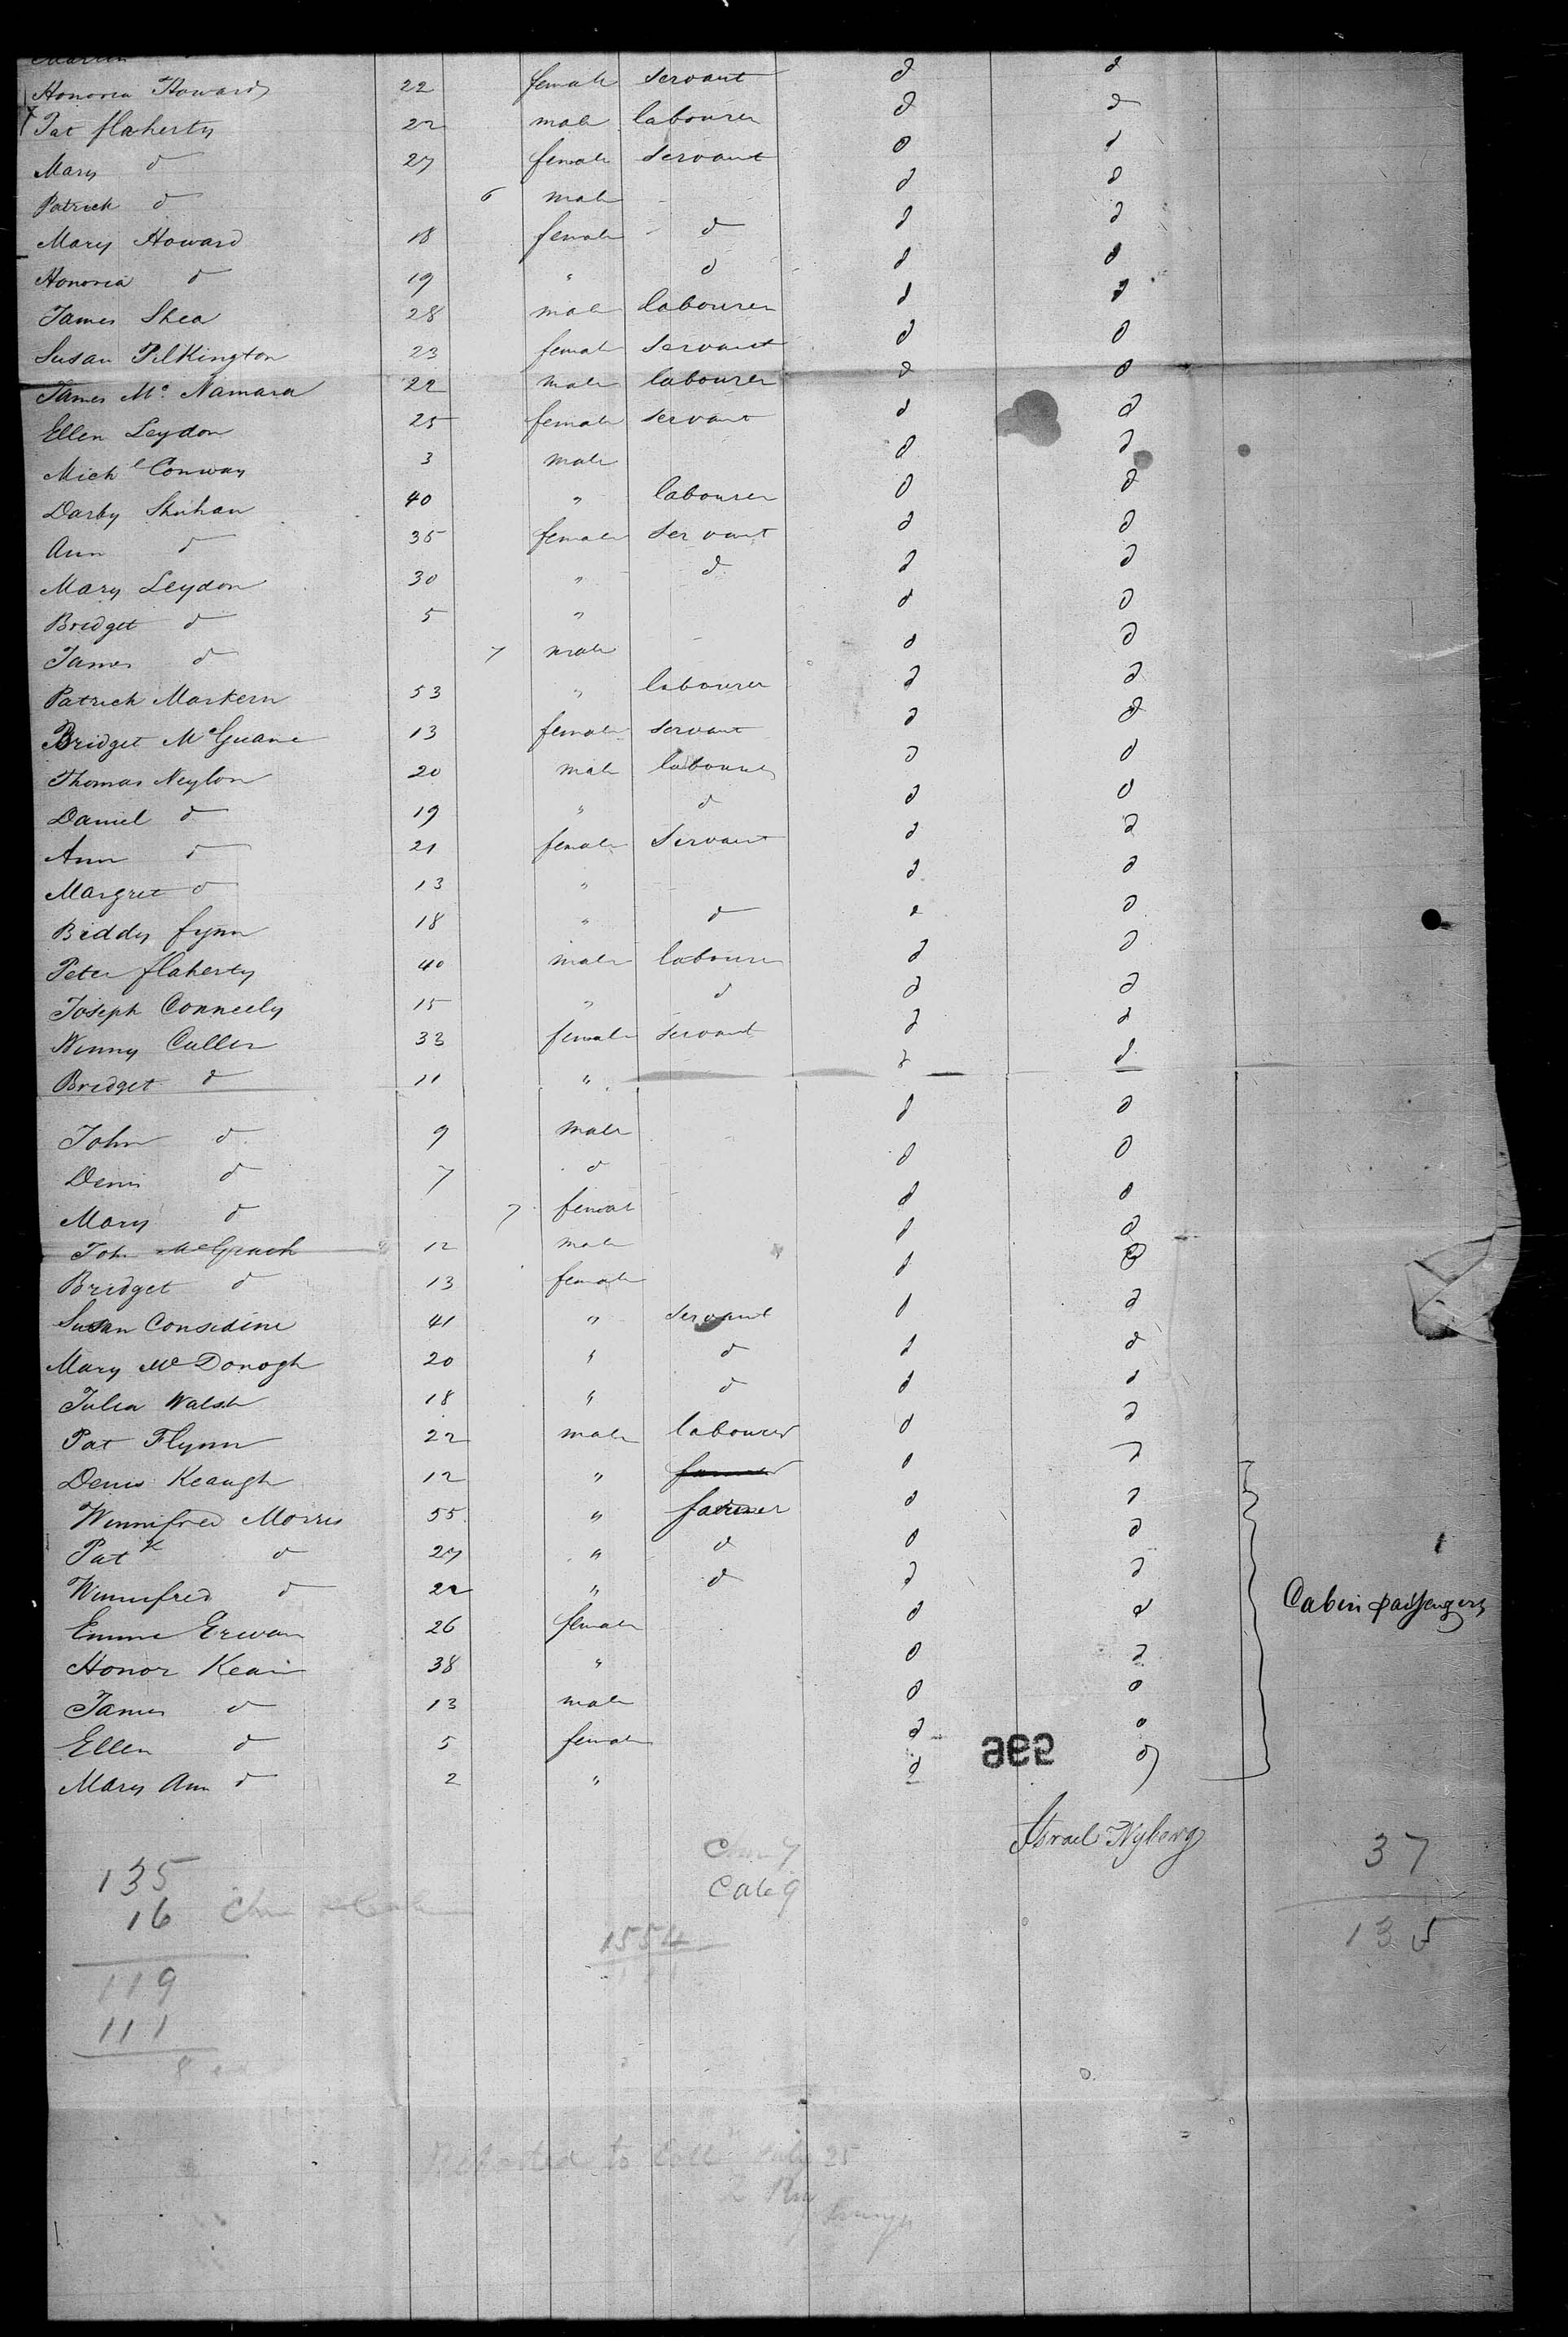 Honoria Howard 22 female servant d d
Pat flaherty 22 male labourer d d
Mary d 27 female servant d d
Patrick d 6 male d d
Mary Howard 18 female d d d
Honoria d 19 " d d d
James Shea 28 male labourer d d
Susan Pilkington 23 female servant d d
James Mc Namara 22 male labourer d d
Ellen Leydon 25 female servant d d
Michl Conway 3 male d d
Darby Shuhan 40 " labourer d d
Ann d 35 female servant d d
Mary Leydon 30 " d d d
Bridget d 5 " d d
James d 7 male d d
Patrick Markern 53 " labourer d d
Bridget McGuane 13 female servant d d
Thomas Neylon 20 male labourer d d
Daniel d 19 " d d d
Ann d 21 female Servant d d
Margret d 13 " d d
Biddy fynn 18 " d d d
Peter flaherty 40 male labourer d d
Joseph Conneely 15 " d d d
Winny Cullen 33 female servant d d
Bridget d 11 " d d
John d 9 male d d
Denis d 7 d d d
Mary d 7 female d d
John McGrach 12 male d d
Bridget d 13 female d d
Susan Considine 41 " servant d d
Mary Mc Donogh 20 " d d d
Julia Walsh 18 " d d d
Pat Flynn 22 male labourer d d
Denis Keaugh 12 " farmer d d
Winnifred Morris 55 " farmer d d
Patk d 27 " d d d
Winnifred d 22 " d d d Cabin passengers
Emma Erwan 26 female d d
Honor Kean 38 " d d
James d 13 male d d
Ellen d 5 female d d
996
Mary Ann d 2 " d d
Israel Nyberg
135 37
16 Cab 9
1554 135
119
111
8
to July 25